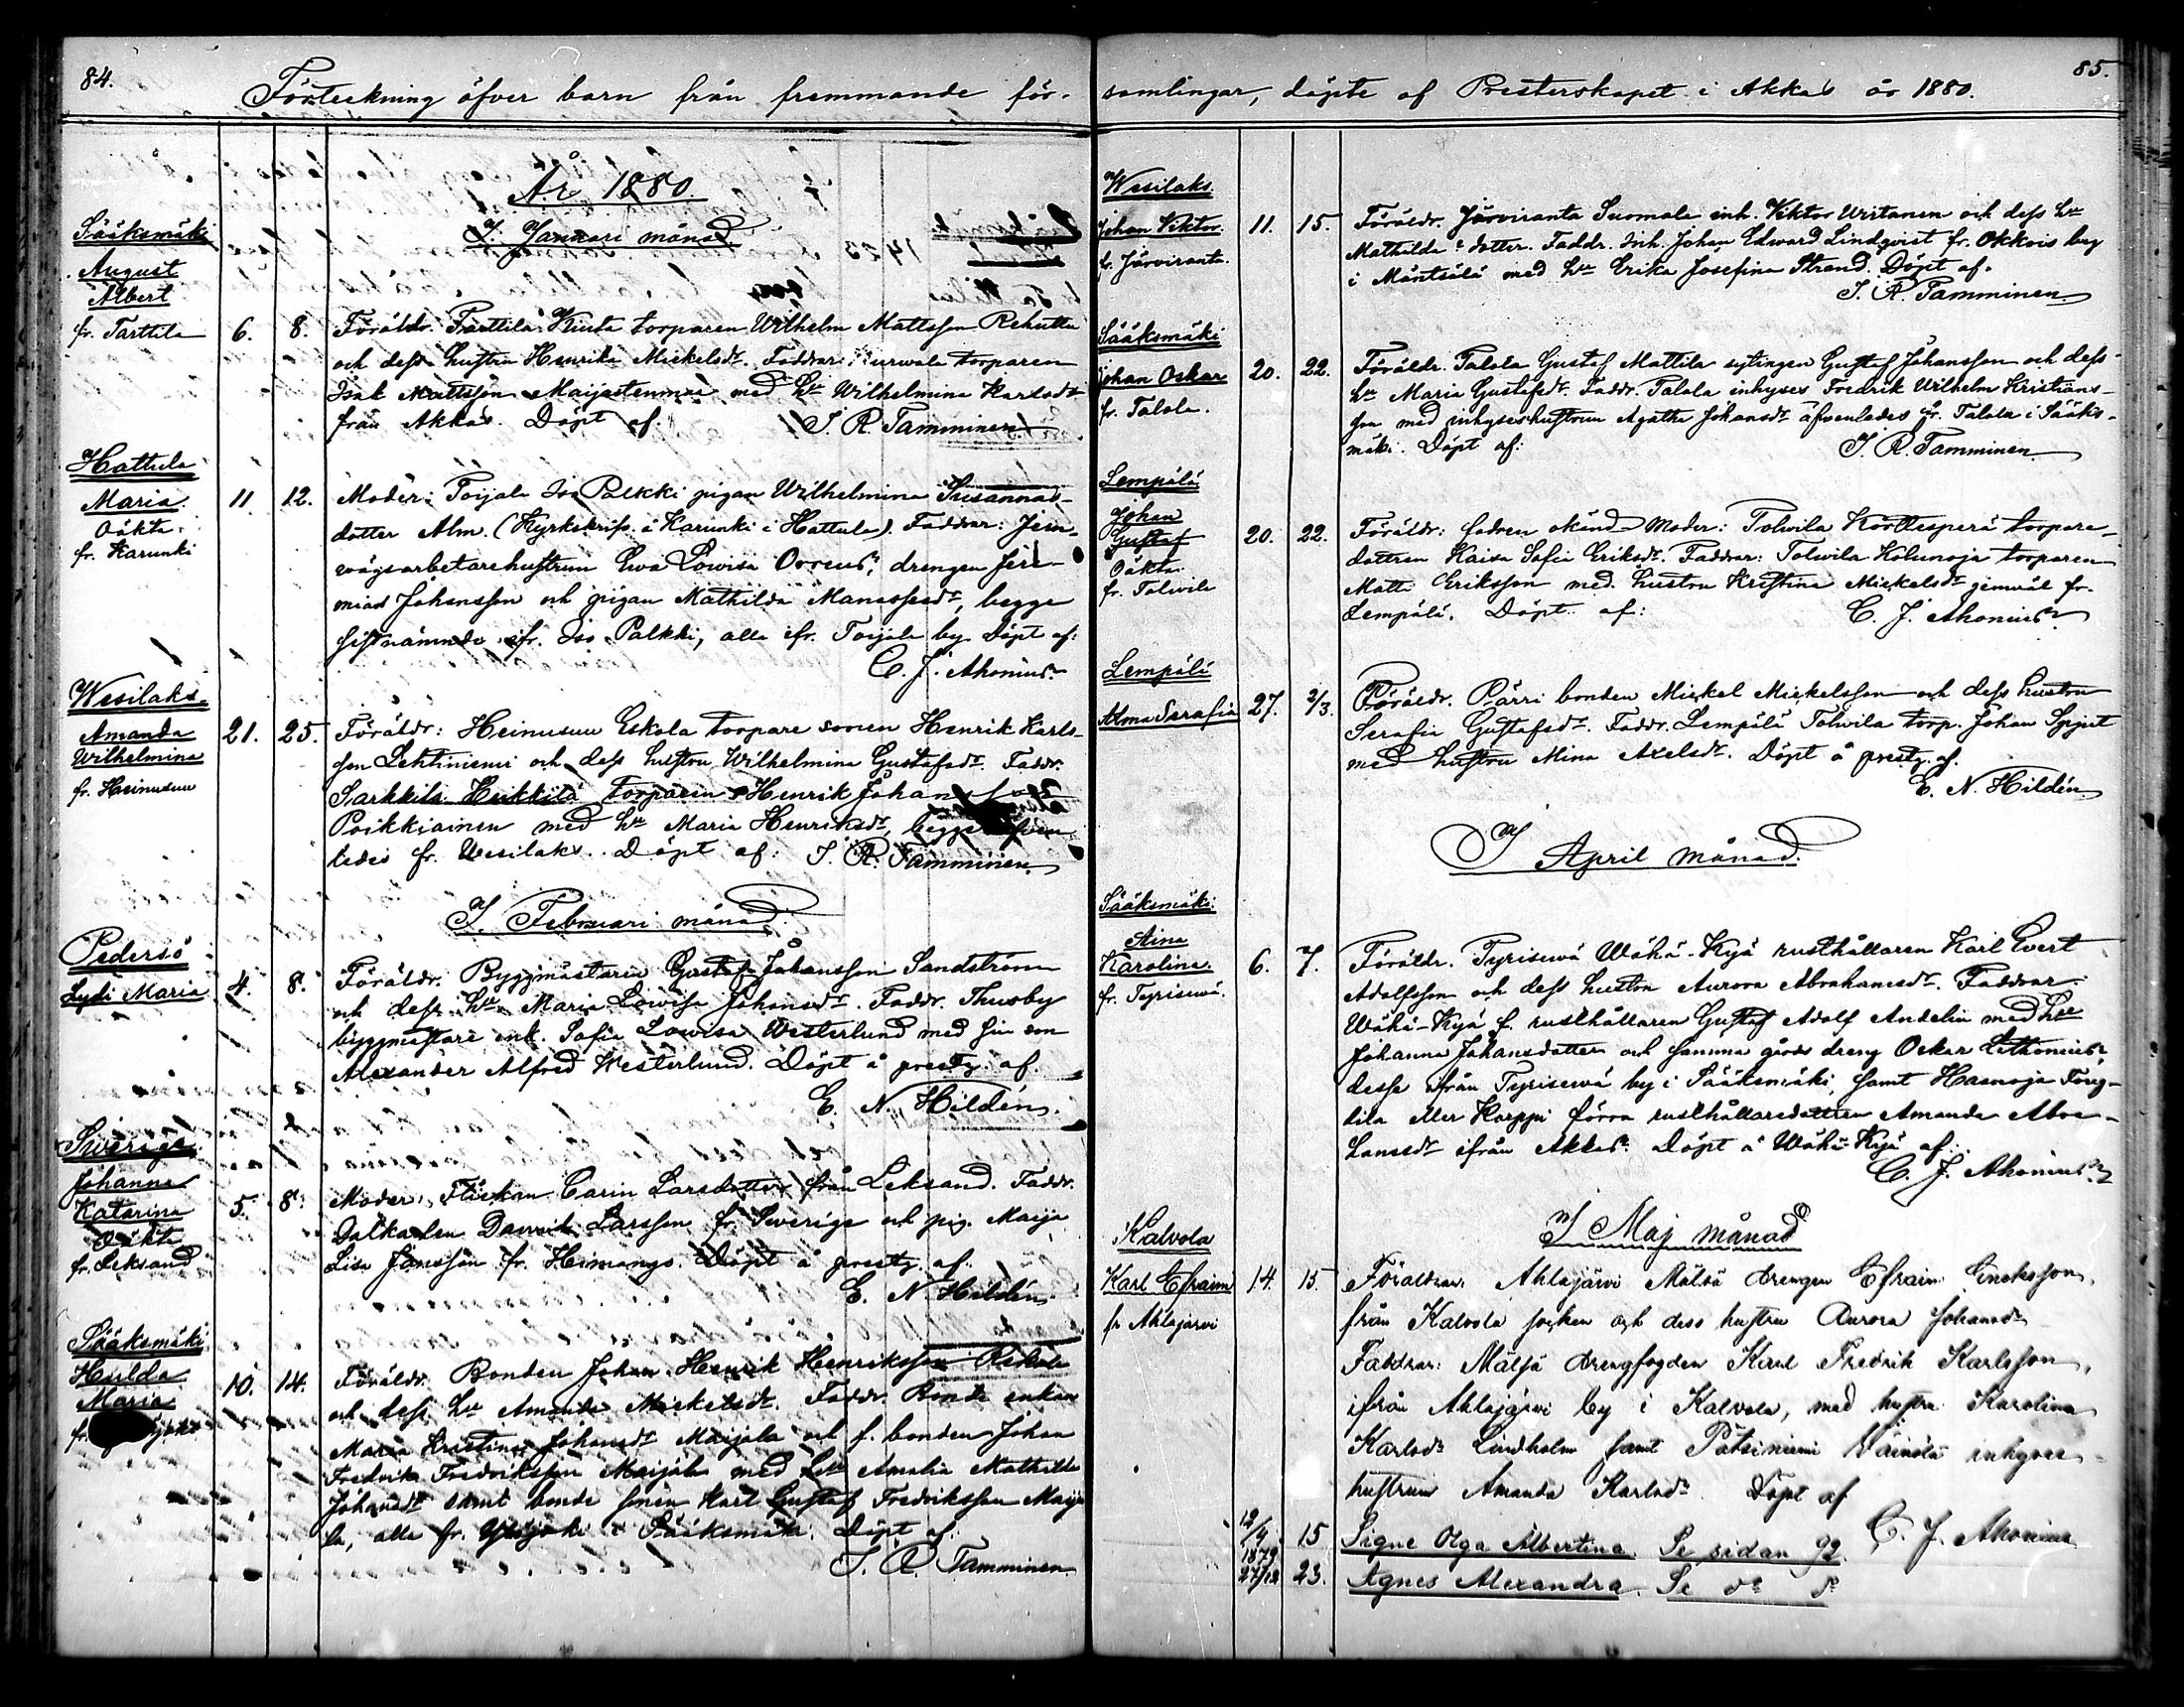 84.
Förteckning öfver barn från fremmande för-
År 1880.
I Januari månad
Sääksmäki
August
Albert
fr. Tarttila
6. 8. Föräldr. Tarttila Kinta torparen Wilhelm Mattsson
och dess hustru Henrika Mickelsdr. Faddrar: torparen
Isak Mattsson med hu Wilhelmina Karlsdr
från Akkas. Döpt af J. R. Tamminen
Hattula
Maria
Oäkta
fr. Karunki
11. 12. Moder: Toijala Iso Palkki pigan Wilhelmina Susannas-
dotter Alm. (Kyrkskrifv. i Karunki i Hattula). Faddrar: Jern-
vägsarbetarehustrun Ewa Lowisa drengen Jere-
mias Johansson och pigan Mathilda Manassesdr, begge
sistnämnde ifr. Iso Palkki, alla ifr. Toijala by. Döpt af:
C. J. Ahonius
Wesilaks
Amanda
Wilhelmina
fr. Heinusuu
21. 25. Föräldr: Heinusuu Eskola torpare sonen Henrik Karls-
son Lehtiniemi och dess hustru Wilhelmina Gustafsdr. Faddr.
Sarkkila Heikkilä torparen Henrik Johansson
Poikkiainen med hu Maria Henriksdr, begge äfven
ledes fr. Wesilaks. Döpt af: J. R. Tamminen
I Februari månad
Pedersö
Lydi Maria
4. 8. Föräldr. Byggmästaren Gustaf Johansson Sandström
och dess hu Maria Lowisa Johansdr. Faddr. Thusby
byggmästare enk. Sofia Lowisa Westerlund med sin son
Alexander Alfred Westerlund. Döpt å prestg. af
E. N. Hildén
Swerige
Johanna
Katarina
Oäkta
fr. Leksand
5. 8. Moder: Flickan Carin Larsdotter från Leksand. Faddr.
Dalkarlen Larsson fr. Swerige och pig. Maija
Lisa Jansson fr. Döpt å prestg. af
E. N. Hildén
Sääksmäki
Hulda
Maria
fr.
10. 14. Föräldr. Bonden Johan Henrik Henriksson
och dess hu Amanda Mickelsdr. Faddr. Bonde enkan
Maria Kristina Johansdr Maijala och f. bonden Johan
Fredrik Fredriksson Maijala med hu Amalia Mathilda
Johansdr samt bonde sonen Karl Gustaf Fredriksson Maija
la, alla fr. i Sääksmäki. Döpt af:
J. R. Tamminen
85.
samlingar, döpte af Presterskapet i Akkas år 1880.
Wesilaks
Johan Viktor
fr. Järviranta
11. 15. Föräldr. Järviranta Suomela inh. Viktor Wirtanen och dess hu
Mathilda dotter. Faddr. Inh. Johan Edward Lindqvist fr. Okkois by
i Mäntsälä med hu Erika Josefina Strand. Döpt af.
J. R. Tamminen
Sääksmäki
Johan Oskar
fr. Talola.
20. 22. Föräldr. Talola Gustaf Mattila sytingen Gustaf Johansson och dess
hu Maria Gustafsdr. Faddr. Talola inhyses Fredrik Wilhelm Kristians-
son med inhyseshustrun Agatha Johansdr äfvenledes fr. Talola i Sääks-
mäki. Döpt af: J. R. Tamminen
Lempälä
Johan
Gustaf
Oäkta
fr. Tolwila
20. 22. Föräldr: fadren okänd Moder: Tolwila Korttesperä torpare-
dottren Kaisa Sofia Eriksdr. Faddrar: Tolwila Kolunoja torparen
Matti Eriksson med hustru Kristina Mickelsdr jemväl fr.
Lempälä. Döpt af: C. J. Ahonius
Lempälä
Alma Serafia
27. 2/3. Föräldr. Pärri bonden Mickel Mickelsson och dess hustru
Serafia Gustafsdr. Faddr. Lempälä Tolwila torp. Johan Spjut
med hustru Mina Axelsdr. Döpt å prestg. af.
E. N. Hildén
I April månad.
Sääksmäki
Aina
Karolina
fr. Tyrisewä.
6. 7. Föräldr. Tyrisewä Wähä-Kyä rusthållaren Karl Evert
Adolfsson och dess hustru Aurora Abrahamsdr. Faddrar
Wähä-Kyä f. rusthållaren Gustaf Adolf Andelin med hu
Johanna Johansdotter och samma gårds dreng Oskar Lithonius,
desse ifrån Tyrisewä by i Sääksmäki, samt Hasnoja
tila eller Karppi förra rusthållaredottren Amanda Abra-
hamsdr ifrån Akkas. Döpt å Wähä-Kyä af.
C. J. Ahonius
I Maj månad
Kalvola
Karl Efraim
fr Ahlajärvi
14. 15. Föräldrar: Ahlajärvi Mälsä drengen Efraim Eriksson,
från Kalvola socken och dess hustru Aurora Johansdr
Faddrar: Mälsä drengfogden Karl Fredrik Karlsson,
ifrån Ahlajärvi by i Kalvola, med hustru Karolina
Karlsdr Lindholm samt Pätsiniemi Väinölä inhyses-
hustrun Amanda Karlsdr. Döpt af
C. J. Ahonius
12/4 15 Signe Olga Albertina. Se sidan 92.
1879 27/12 23. Agnes Alexandra. Se do do